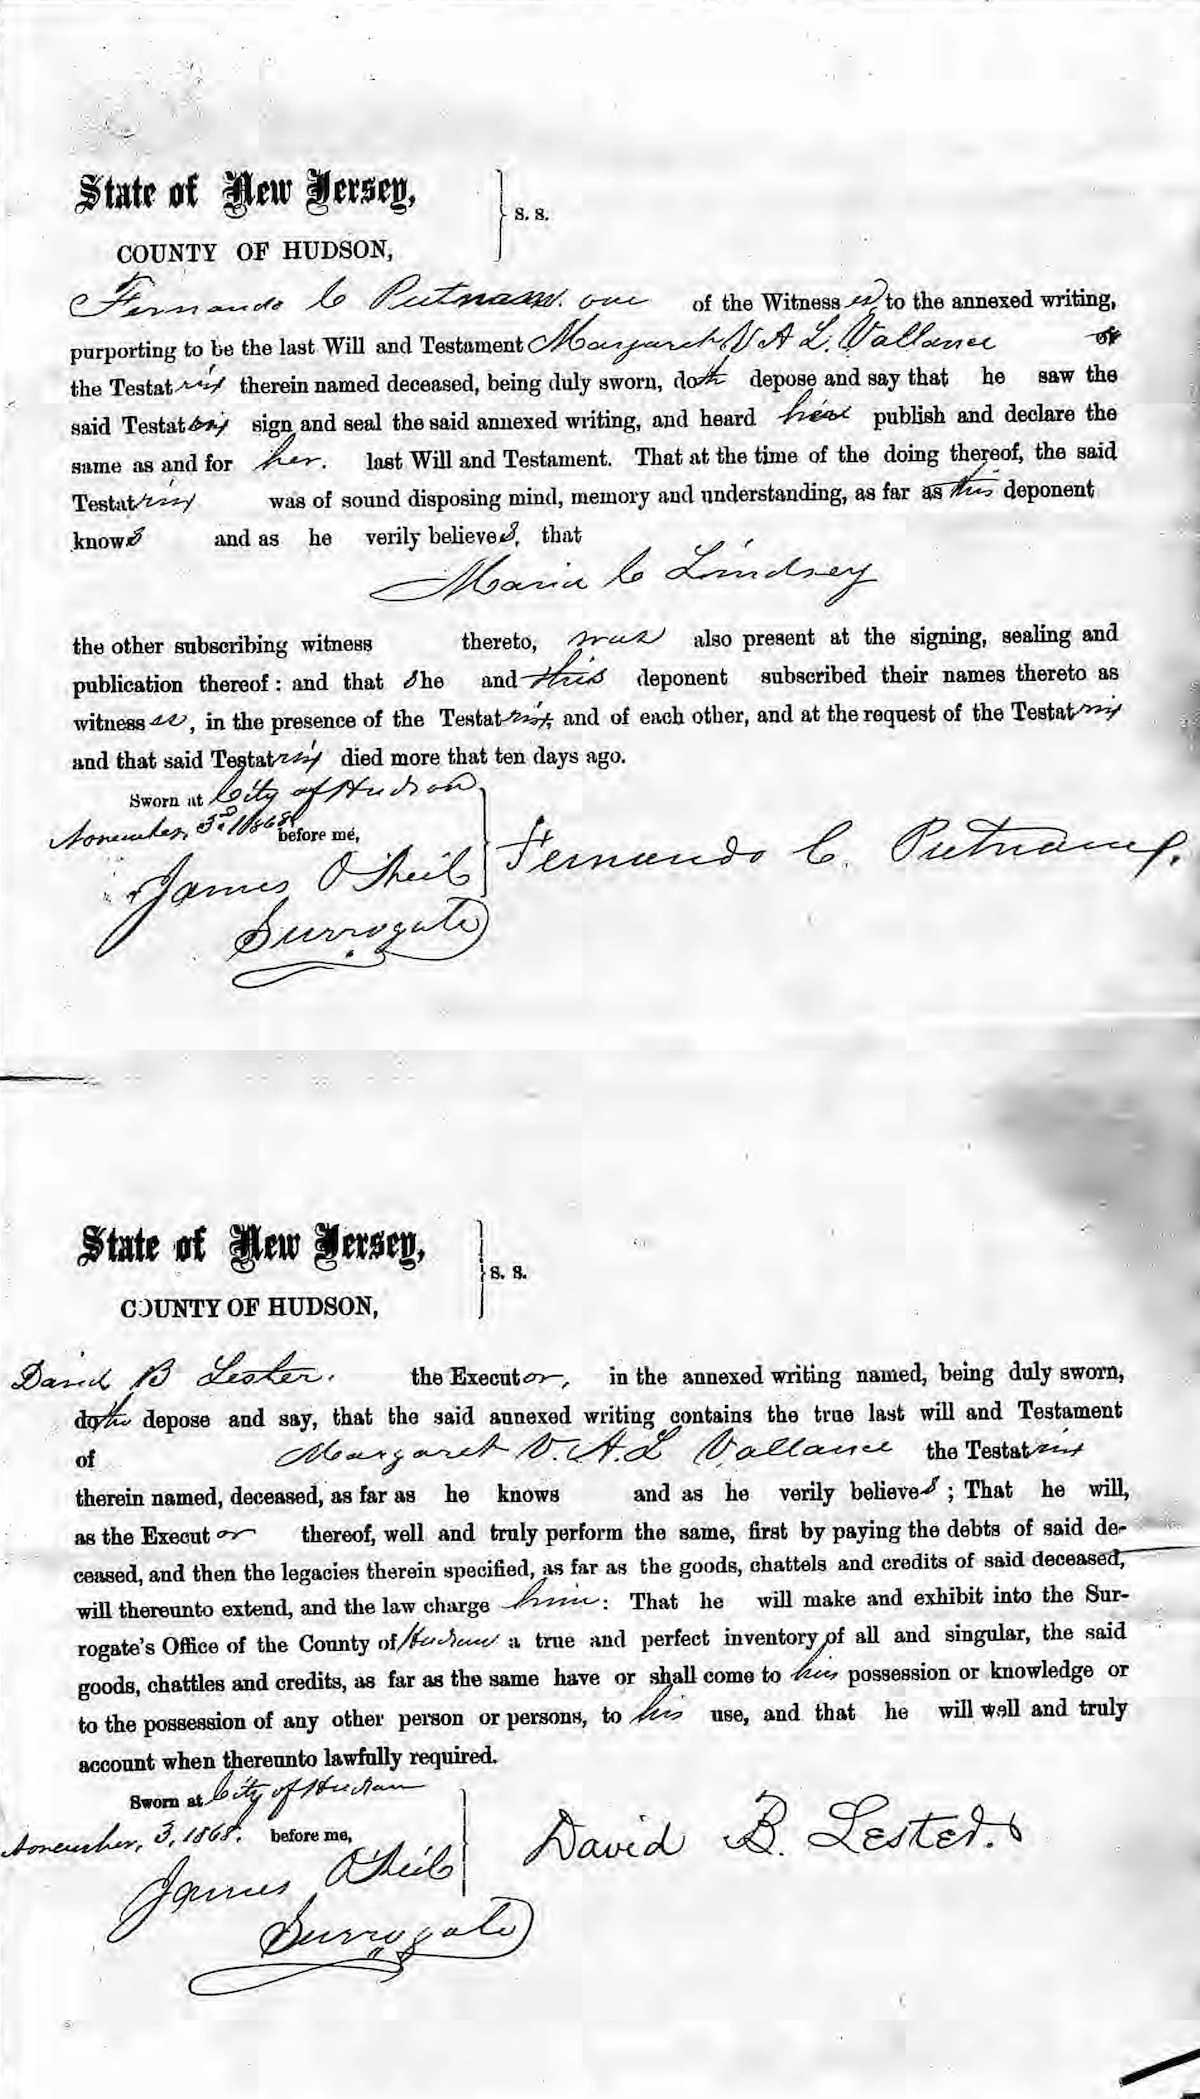 State of New Jersey, } S. S.
COUNTY OF HUDSON,
Fernando C Putnam. one of the Witness es to the annexed writing,
purporting to be the last Will and Testament Margaret V A L. Vallance of
the Testatrix therein named deceased, being duly sworn, doth depose and say that he saw the
said Testatrix sign and seal the said annexed writing, and heard her publish and declare the
same as and for her. last Will and Testament. That at the time of the doing thereof, the said
Testatrix was of sound disposing mind, memory and understanding, as far as this deponent
knows and as he verily believes, that
Maria C Lindsey
the other subscribing witness thereto, was also present at the signing, sealing and
publication thereof: and that she and this deponent subscribed their names thereto as
witness es, in the presence of the Testatrix, and of each other, and at the request of the Testatrix
and that said Testatrix died more that ten days ago.
Sworn at City of Hudson
November, 3d. 1868 before me,
James O'Neil Fernando C. Putnam.
Surrogate
State of New Jersey, } S. S.
COUNTY OF HUDSON,
David B Lester. the Executor, in the annexed writing named, being duly sworn,
doth depose and say, that the said annexed writing contains the true last will and Testament
of Margaret V. A. L Vallance the Testatrix
therein named, deceased, as far as he knows and as he verily believes; That he will,
as the Execut or thereof, well and truly perform the same, first by paying the debts of said de-
ceased, and then the legacies therein specified, as far as the goods, chattels and credits of said deceased,
will thereunto extend, and the law charge him: That he will make and exhibit into the Sur-
rogate's Office of the County of Hudson a true and perfect inventory of all and singular, the said
goods, chattles and credits, as far as the same have or shall come to his possession or knowledge or
to the possession of any other person or persons, to his use, and that he will well and truly
account when thereunto lawfully required.
Sworn at City of Hudson
November, 3, 1868. before me,
James O'Neil David B. Lester.
Surrogate